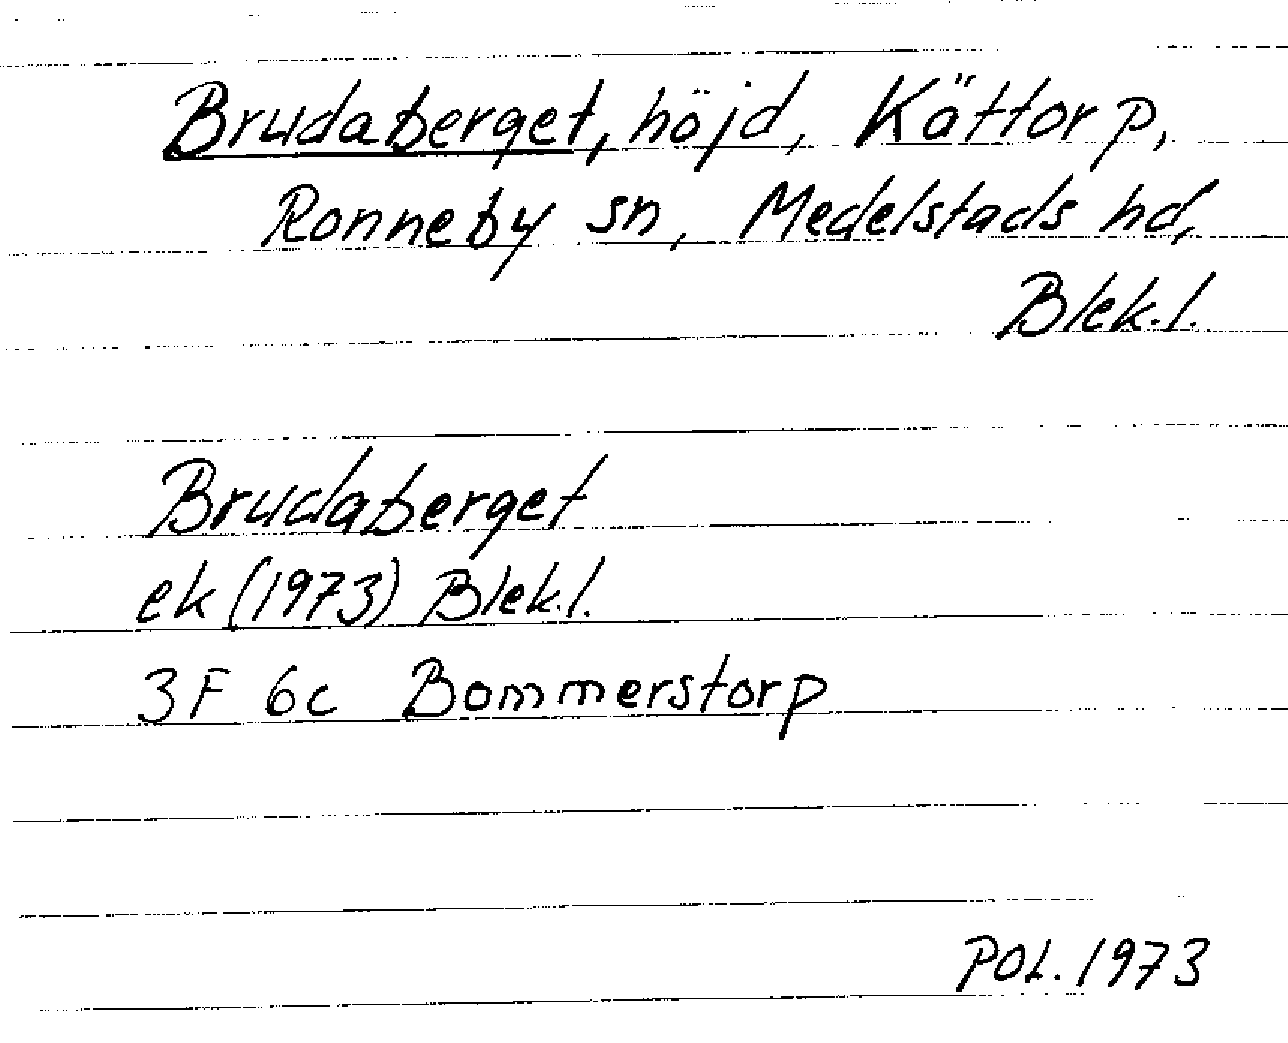 Brudaberget, höjd, Kättorp,
Ronneby sn, Medelstads hd,
Blek.l.
Brudaberget
ek (1973) Blek.l.
3F 6c Bommerstorp
POL. 1973